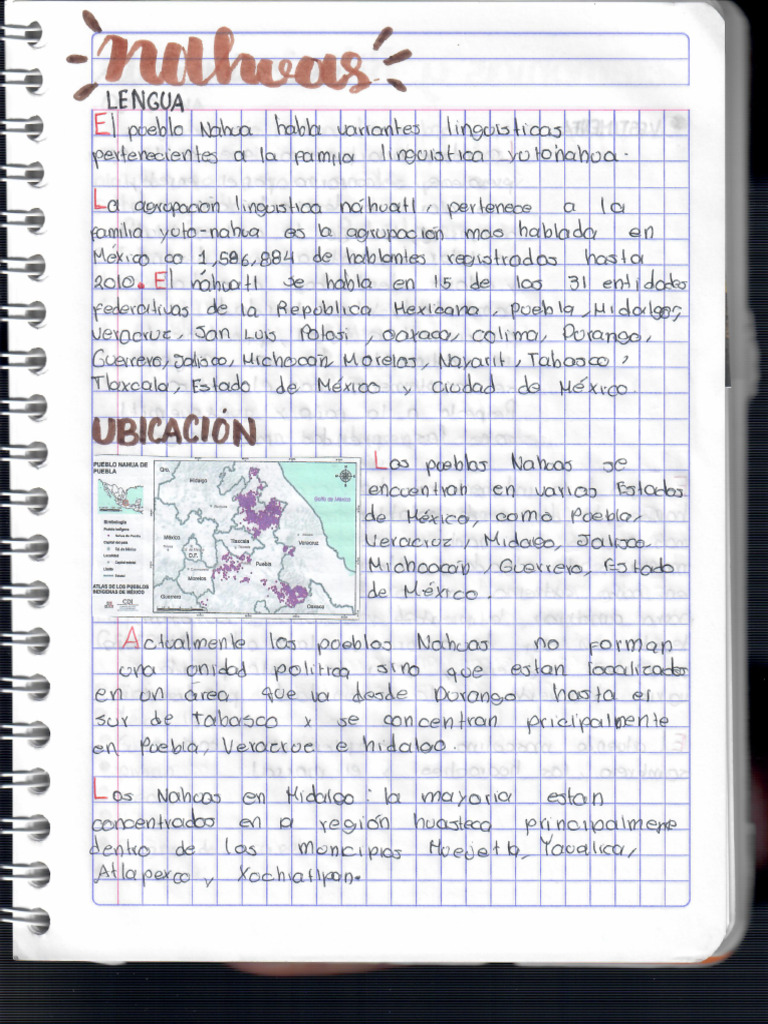 nahuas
LENGUA
El pueblo Nahua habla variantes linguisticas
pertenecientes a la familia linguistica yutonahua.
La agrupación linguistica náhuatl, pertenece a la
familia yuto-nahua es la agrupación mas hablada en
México co 1,586,884 de hablantes registrados hasta
2010. El náhuatl se habla en 15 de los 31 entidades
federativas de la República Mexicana, puebla, Hidalgo,
veracruz, San Luis Potosi, oaxaca, colima, Durango,
Guerrero, Jalisco, Michoacán Morelos, Nayarit, Tabasco,
Tlaxcala, Estado de México y ciudad de México.
UBICACIÓN
PUEBLO NAHUA DE
PUEBLA
Simbología
ATLAS DE LOS PUEBLOS
INDÍGENAS DE MÉXICO
CDI
Qro.
Hidalgo
Golfo de México
México
Tlaxcala
D.F.
Puebla
Veracruz
Morelos
Guerrero
Oaxaca
Los pueblos Nahuas se
encuentran en varios Estados
de México, como Puebla,
Veracruz, Hidalgo, Jalisco
Michoacán, Guerrero, Estado
de México.
Actualmente los pueblos Nahuas no forman
una unidad politica sino que estan localizados
en un área que va desde Durango hasta el
sur de tabasco x se concentran pricipalmente
en Puebla, Veracruz e hidalgo.
Los Nahuas en Hidalgo: la mayoria estan
concentrados en la región huasteca principalmene
dentro de los municipios Huejetla, Yaualica,
Atlapexco y Xochiatipan.